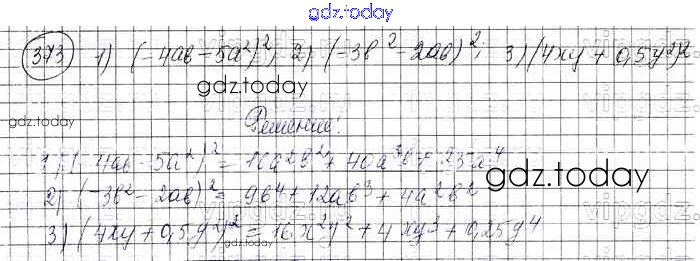 gdz.today
373 1) (-4ab - 5a²)²; 2) (-3b² - 2ab)²; 3) (4xy + 0,5y²)²
gdz.today
gdz.today
Решение:
1) (-4ab - 5a²)² = 16a²b² + 40a³b + 25a⁴
2) (-3b² - 2ab)² = 9b⁴ + 12ab³ + 4a²b²
gdz.today
3) (4xy + 0,5y²)² = 16x²y² + 4xy³ + 0,25y⁴
gdz.today